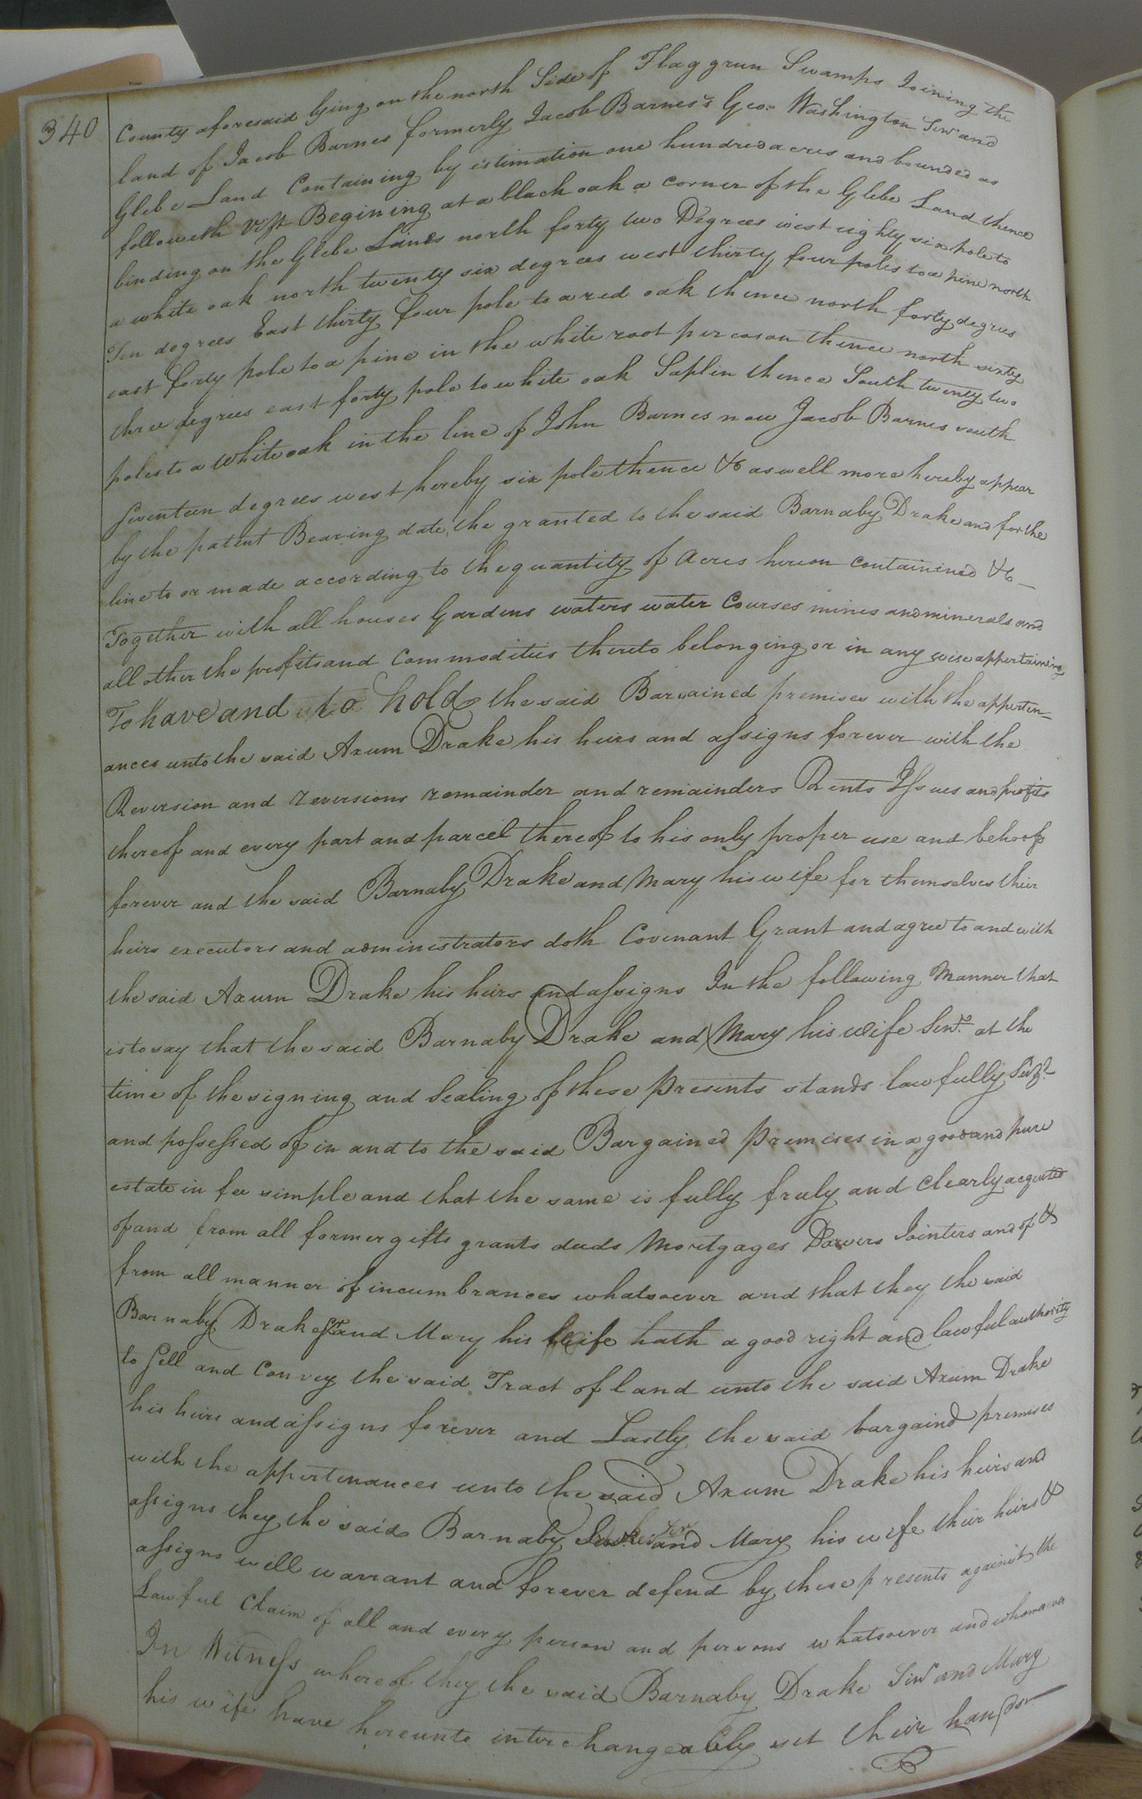 340
County aforesaid lying on the north Side of Flaggrun Swamps Joining the
land of Jacob Barnes formerly Jacob Barnes's Geo: Washington Senr and
Glebe Land Containing by estimation one hundred acres and bounded as
followeth Begining at a black oak a corner of the Glebe Land thence
binding on the Glebe Lines north forty two Degrees west eighty six pole to
a white oak north twenty six degrees west thirty four poles to a pine north
Ten degrees East thirty four pole to a red oak thence north forty degrees
east forty pole to a pine in the white root percoson thence north sixty
three degrees east forty pole to white oak Saplin thence South twenty two
poles to a white oak in the line of John Barnes now Jacob Barnes south
Seventeen degrees west hereby six pole thence &c as well more hereby appear
by the patent Bearing date the granted to the said Barnaby Drake and for the
line to or made according to the quantity of acres hereon containined &c
Together with all houses Gardens waters water Courses mines and minerals and
all other the profits and commodities thereto belonging or in any wise appertaining
To have and to hold the said Barained premises with the apperten-
ances unto the said Axum Drake his heirs and assigns forever with the
Reversion and reversions remainder and remainders Rents Issues and profits
thereof and every part and parcel thereof to his only proper use and behoof
forever and the said Barnaby Drake and Mary his wife for themselves their
heirs executors and administrators doth Covenant Grant and agree to and with
the said Axum Drake his heirs and assigns In the following Manner that
is to say that the said Barnaby Drake and Mary his wife Senr. at the
time of the signing and Sealing of these presents stands lawfully Siezd
and possessed of in and to the said Bargained premises in a good and pure
estate in fee simple and that the same is fully fruly and Clearly acquited
of and from all former gifts grants deeds Mortgages Dowers Jointers and of &
from all manner of incumbrances whatsoever and that they the said
Barnaby Drake Sr and Mary his wife hath a good right and lawful authority
to Sell and Convey the said Tract of land unto the said Axum Drake
his heirs and assigns forever and Lastly the said bargaind premises
with the appertenances unto the said Axum Drake his heirs and
assigns they the said Barnaby Drake Senr and Mary his wife their heirs &
assigns will warrant and forever defend by these presents against the
Lawful Claim of all and every person and persons whatsoever and whomever
In Witness whereof they the said Barnaby Drake Senr and Mary
his wife have hereunto interchangeably set their hands